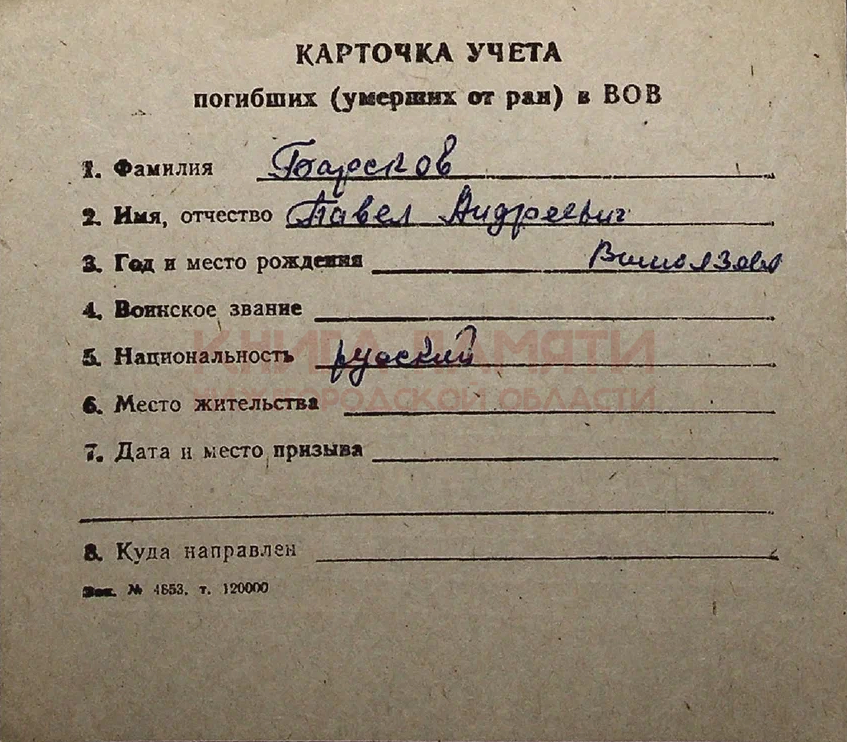 КАРТОЧКА УЧЕТА
погибших (умерших от ран) в ВОВ
1. Фамилия Барсков
2. Имя, отчество Павел Андреевич
3. Год и место рождения
4. Воинское звание
КНИГА ПАМЯТИ
5. Национальность русский
НИЖЕГОРОДСКОЙ ОБЛАСТИ
6. Место жительства
7. Дата и место призыва
8. Куда направлен
Зак. № 4653. т. 120000